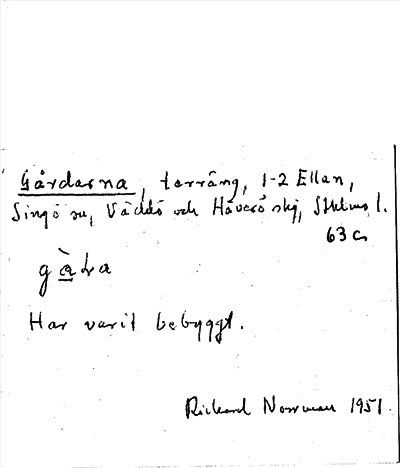 Gårdarna, terräng, 1-2 Ellan,
Singö sn, Väddö och Häverö skg, Sthlms l.
63 c
Har varit bebyggt.
Rickard Norrman 1951.